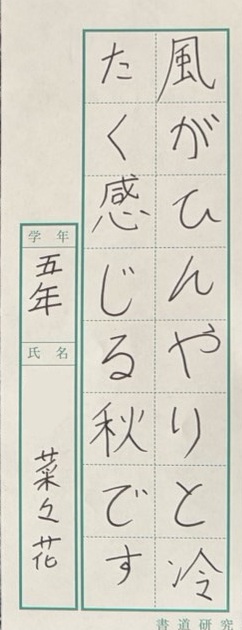 風がひんやりと冷
たく感じる秋です
学年
五年
氏名
菜々花
書道研究